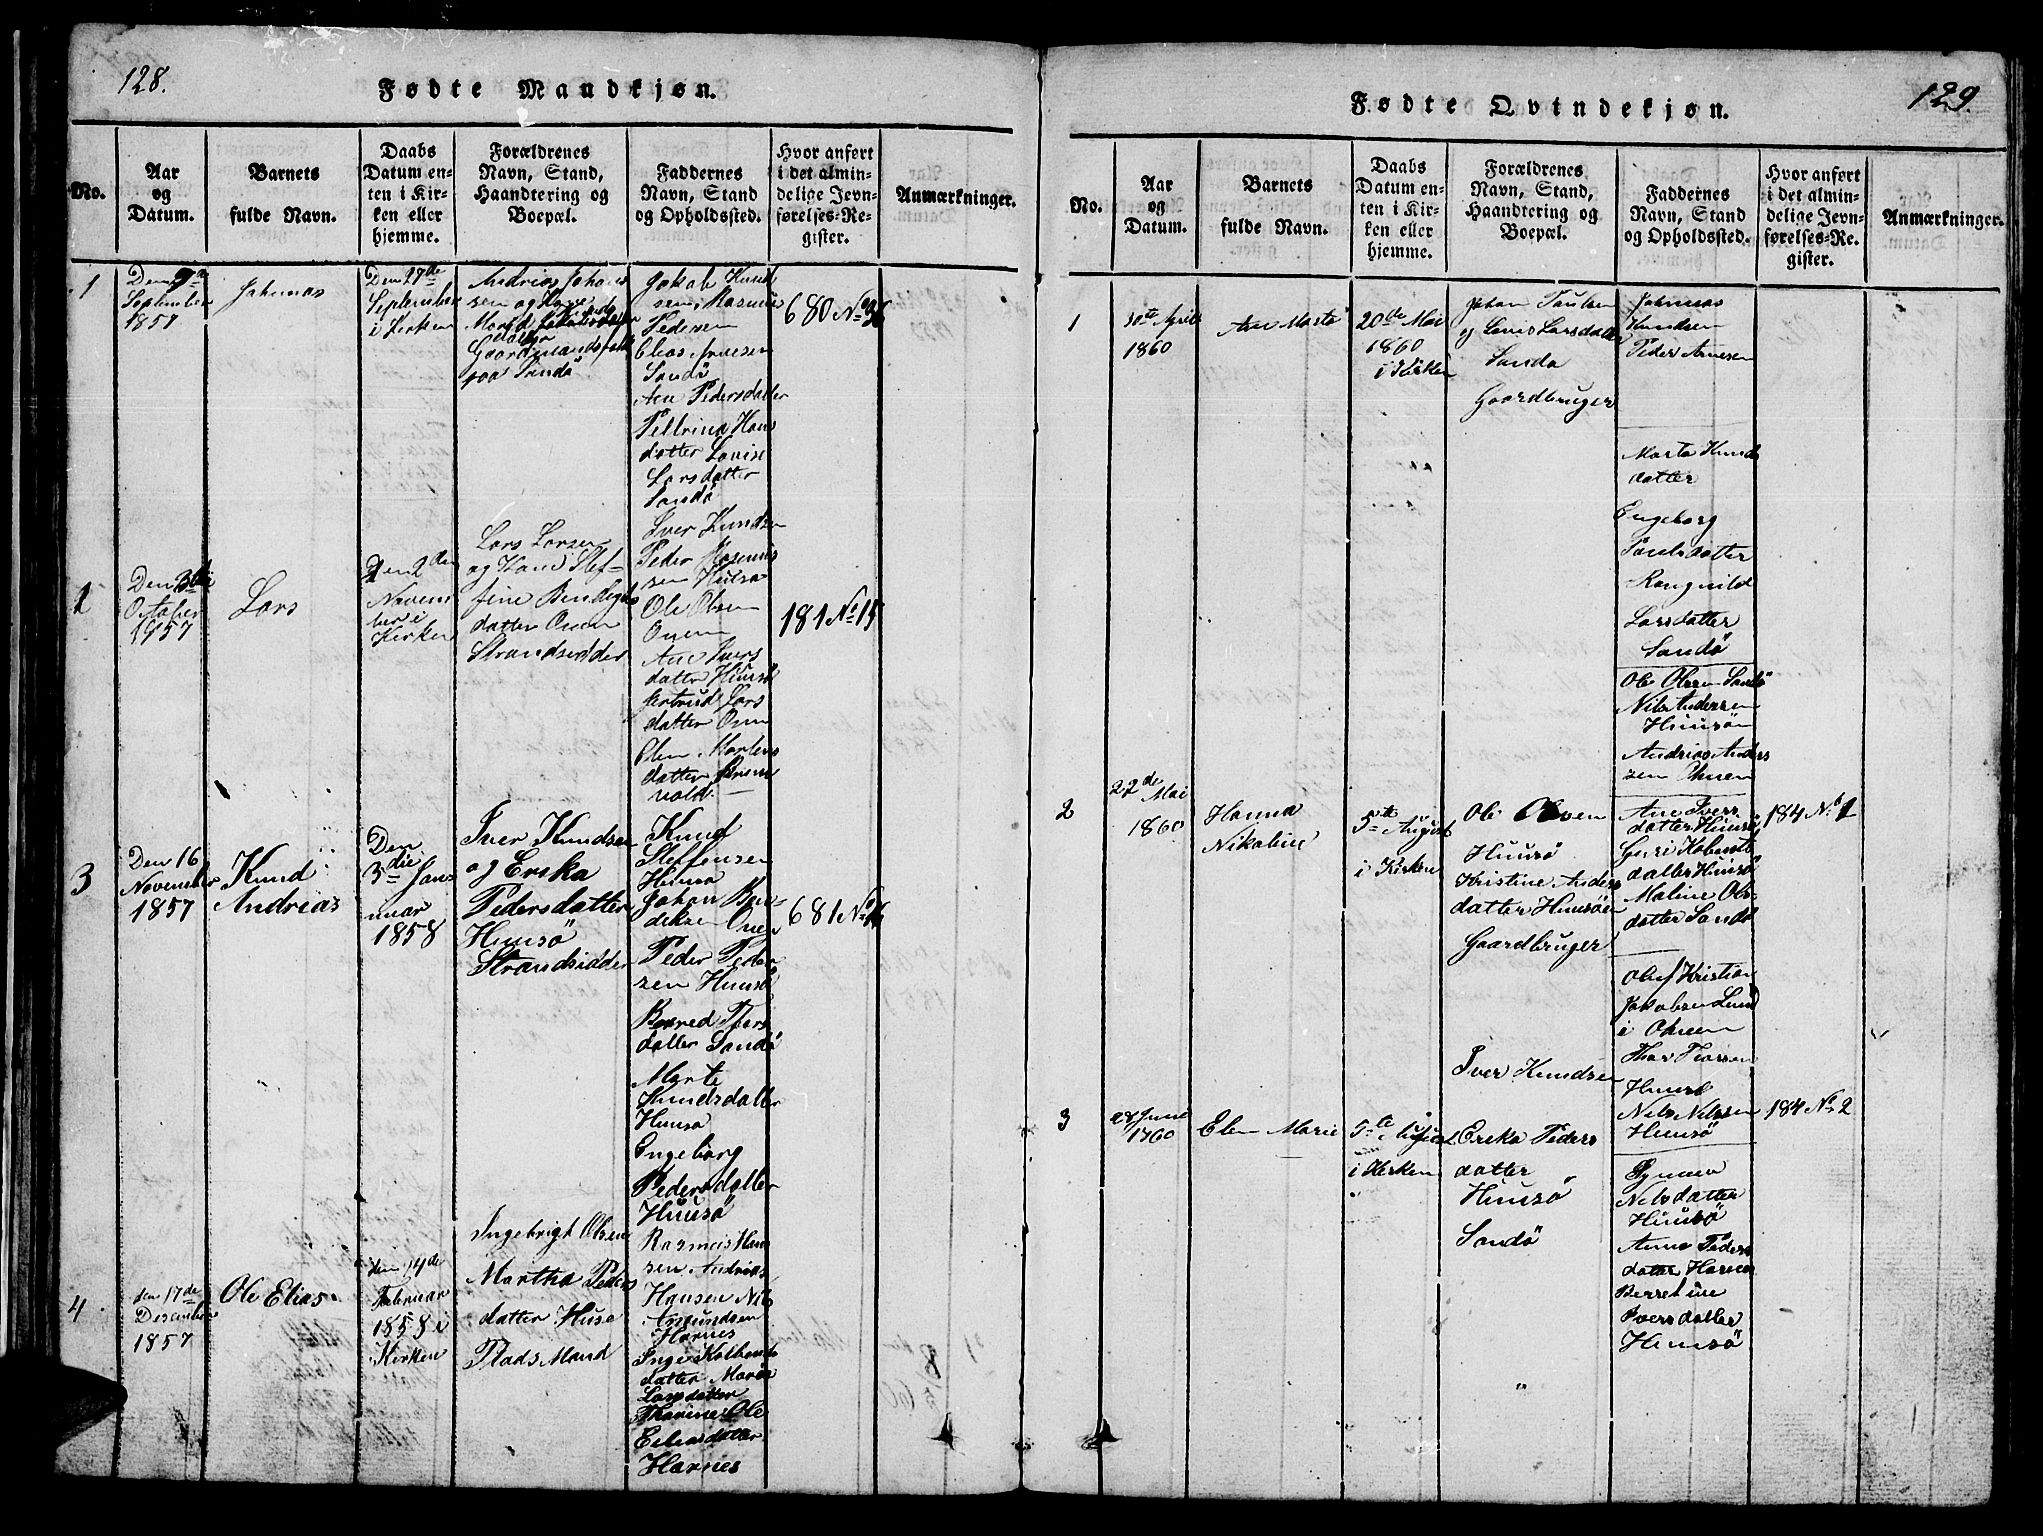 128.
Fødte Mandkjøn.
No.
Aar
og
Datum.
Barnets
fulde Navn.
Daabs
Datum en-
ten i Kir-
ken eller
hjemme.
Forældrenes
Navn, Stand,
Haandtering og
Boepæl.
Faddernes
Navn, Stand
og Opholdssted.
Hvor anført
i det almin-
delige Jevn-
førelses-Re-
gister.
Anmærkninger.
1
September
1857
Johannas
Den 17de
September
i Kirken
Andrias Johans
sen og Kone
Gaardmandsfolk
paa Sandö
Jakob Knud
sen, Rasmus
Pedersen
Elias Arnesen
Sandö
Ane Pedersdatter
Peltrina Hans
datter Lovise
Larsdatter
Sandö
680 No
Den 3die
October
1957
Lars
Den 2den
Novem
ber i
Kirken
Lars Larsen
og Kone Stef-
fine Bendigts
datter Onen
Strandsidder
Iver Knudsen
Peder Rasmus
sen Huusø
Ole Olsen
Onen
Ane Ivers
datter Huusø
Gertrud Lars
datter Onen
Elen Martens
datter
181 No 15
3
Den 16
November
1857
Knud
Andrias
Den
3die Jan
nuar
1858
Iver Knudsen
og Erika
Pedersdatter
Huusö
Strandsidder
Knud
Steffensen
Huusø
Johan Ben-
diksen Onen
Peder Peder
sen Huusö
Berred Thors
datter Sandö
Marte
Knudsdatter
Huusø
Engeborg
Pedersdatter
Huusö
681 No 16
4
den 17de
Descember
1857
Ole Elias
den 14de
Februar
1858 i
Kirken
Ingebrigt Olsen
Martha Peders
datter Huse
Plads Mand
Rasmus Han
sen Andrias
Hansen Nils
Amundsen
Harnes
Inge Kolbents
datter Maria
Larsdatter
Thorine Ole
Eeliasdatter
Harnes
129.
Fødte Qvindekjøn.
No.
Aar
og
Datum.
Barnets
fulde Navn.
Daabs
Datum en-
ten i Kir-
ken eller
hjemme.
Forældrenes
Navn, Stand,
Haandtering og
Boepæl.
Faddernes
Navn, Stand
og Opholdssted.
Hvor anført
i det almin-
delige Jevn-
førelses-Re-
gister.
Anmærkninger.
1
30te April
1860
Ane Marta
20de Mai
1860
i Kirken
Johan Paulsen
og Lovis Larsdatter
Sandø
Gaardbruger
Johannas
Knudsen
Peder Arnesen
Marta Knuds
datter
Engeborg
Paulsdatter
Rangnild
Larsdatter
Sandö
2
22de Mai
1860
Hanna
Nikoline
5te August
i Kirken
Ole Olsen
Huusø
Kristine Anders
datter Huusøen
Gaardbruger
Ole Olsen Sandö
Nils Andersen
Huusøn
Andrias Anders
sen Ohnen
Ane Ivers
datter Huusö
Guri Kolbents
datter Huusø
Maline Ols-
datter Sandö
184 No 1
3
28 June
1860
Elen Marie
5te August
i Kirken
Iver Knudsen
Ereka Peders
datter
Huusø
Sandö
Oluf Kristian
Jakobsen Lund
i Ohnen
Thor Thorsen
Huusø
Nils Nilssen
Huusø
Nilsdatter
Huusø
Anne Peders
datter Harnes
Berret ine
Iversdatter
Huusö
184 No 2